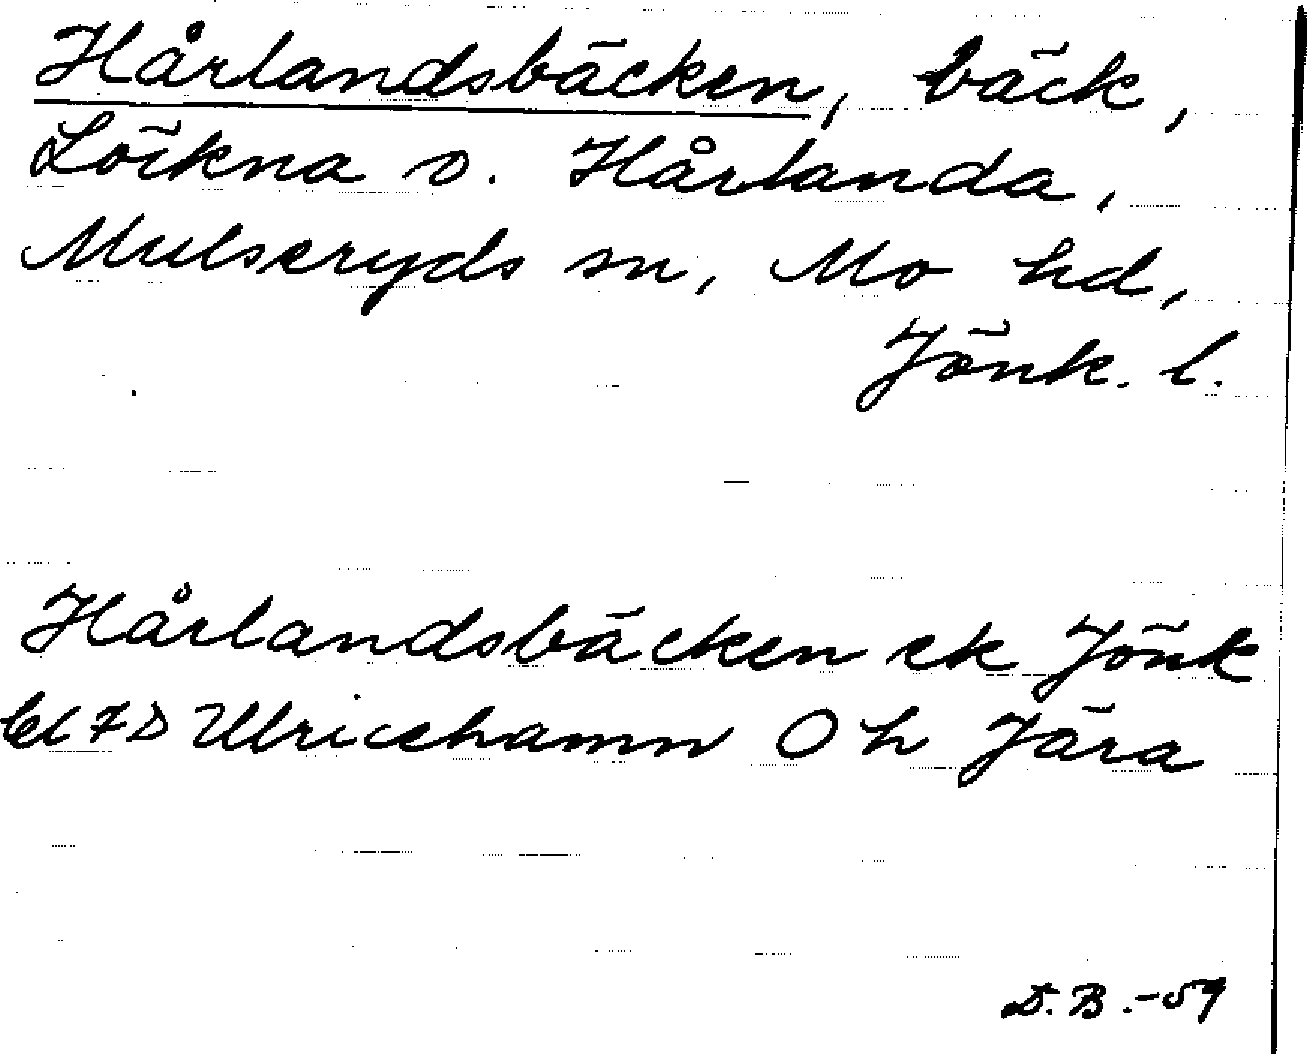 Hårlandsbäcken, bäck,
Löckna o. Hårlanda,
Mulseryds sn, Mo hd,
Jönk. l.
Hårlandsbäcken ek Jönk
bl 7D Ulricehamn Ö h Jära
D.B.-59